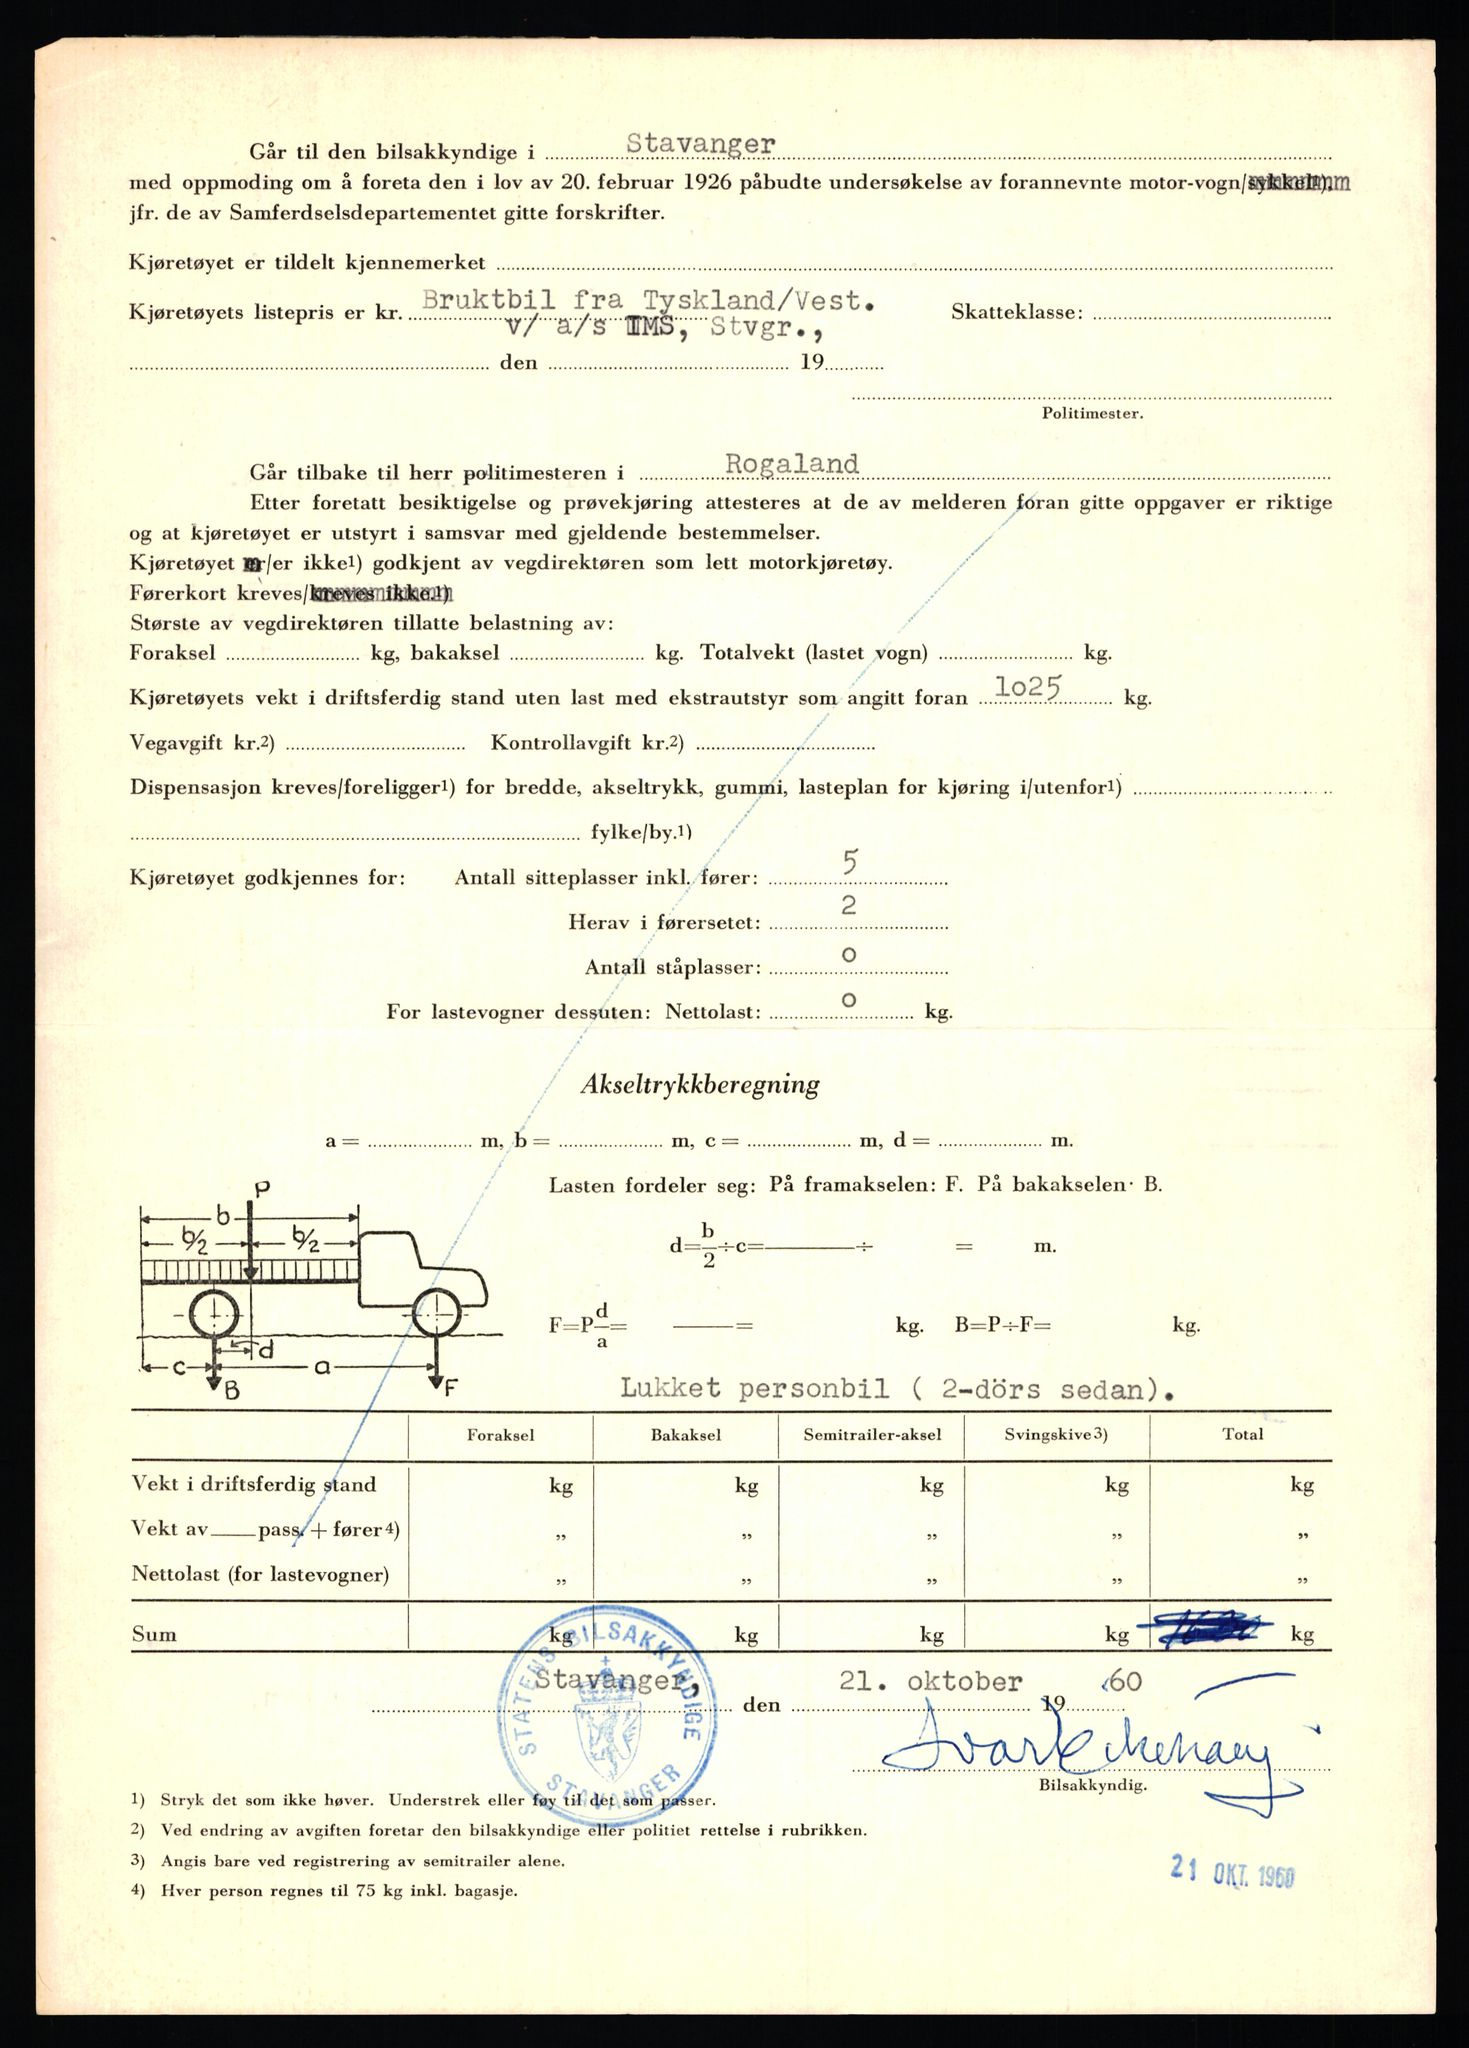 Går til den bilsakkyndige i Stavanger
med oppmoding om å foreta den i lov av 20. februar 1926 påbudte undersøkelse av forannevnte motor-vogn/sykkel1),
jfr. de av Samferdselsdepartementet gitte forskrifter.
Kjøretøyet er tildelt kjennemerket
Kjøretøyets listepris er kr. Bruktbil fra Tyskland/Vest. Skatteklasse:
v/ a/s IMS, Stvgr.,
den 19
Politimester.
Går tilbake til herr politimesteren i Rogaland
Etter foretatt besiktigelse og prøvekjøring attesteres at de av melderen foran gitte oppgaver er riktige
og at kjøretøyet er utstyrt i samsvar med gjeldende bestemmelser.
Kjøretøyet er/er ikke1) godkjent av vegdirektøren som lett motorkjøretøy.
Førerkort kreves/kreves ikke.1)
Største av vegdirektøren tillatte belastning av:
Foraksel kg, bakaksel kg. Totalvekt (lastet vogn) kg.
Kjøretøyets vekt i driftsferdig stand uten last med ekstrautstyr som angitt foran lo25 kg.
Vegavgift kr.2) Kontrollavgift kr.2)
Dispensasjon kreves/foreligger1) for bredde, akseltrykk, gummi, lasteplan for kjøring i/utenfor1)
fylke/by.1)
Kjøretøyet godkjennes for: Antall sitteplasser inkl. fører: 5
Herav i førersetet: 2
Antall ståplasser: o
For lastevogner dessuten: Nettolast: o kg.
Akseltrykkberegning
a = m, b = m, c = m, d = m.
Lasten fordeler seg: På framakselen: F. På bakakselen· B.
P
b
b/2 b/2
d=b/2÷c= ÷ = m.
F=P d/a= = kg. B=P÷F= kg.
d
c a
B F
Lukket personbil ( 2-dörs sedan).
Foraksel Bakaksel Semitrailer-aksel Svingskive3) Total
Vekt i driftsferdig stand kg kg kg kg kg
Vekt av pass. + fører4) „ „ „ „ „
Nettolast (for lastevogner) „ „ „ „ „
Sum kg kg kg kg kg
Stavanger, den 21. oktober 19 60
STATENS BILSAKKYNDIGE
STAVANGER
Bilsakkyndig.
1) Stryk det som ikke høver. Understrek eller føy til det som passer.
2) Ved endring av avgiften foretar den bilsakkyndige eller politiet rettelse i rubrikken.
3) Angis bare ved registrering av semitrailer alene.
4) Hver person regnes til 75 kg inkl. bagasje.
21 OKT. 1960